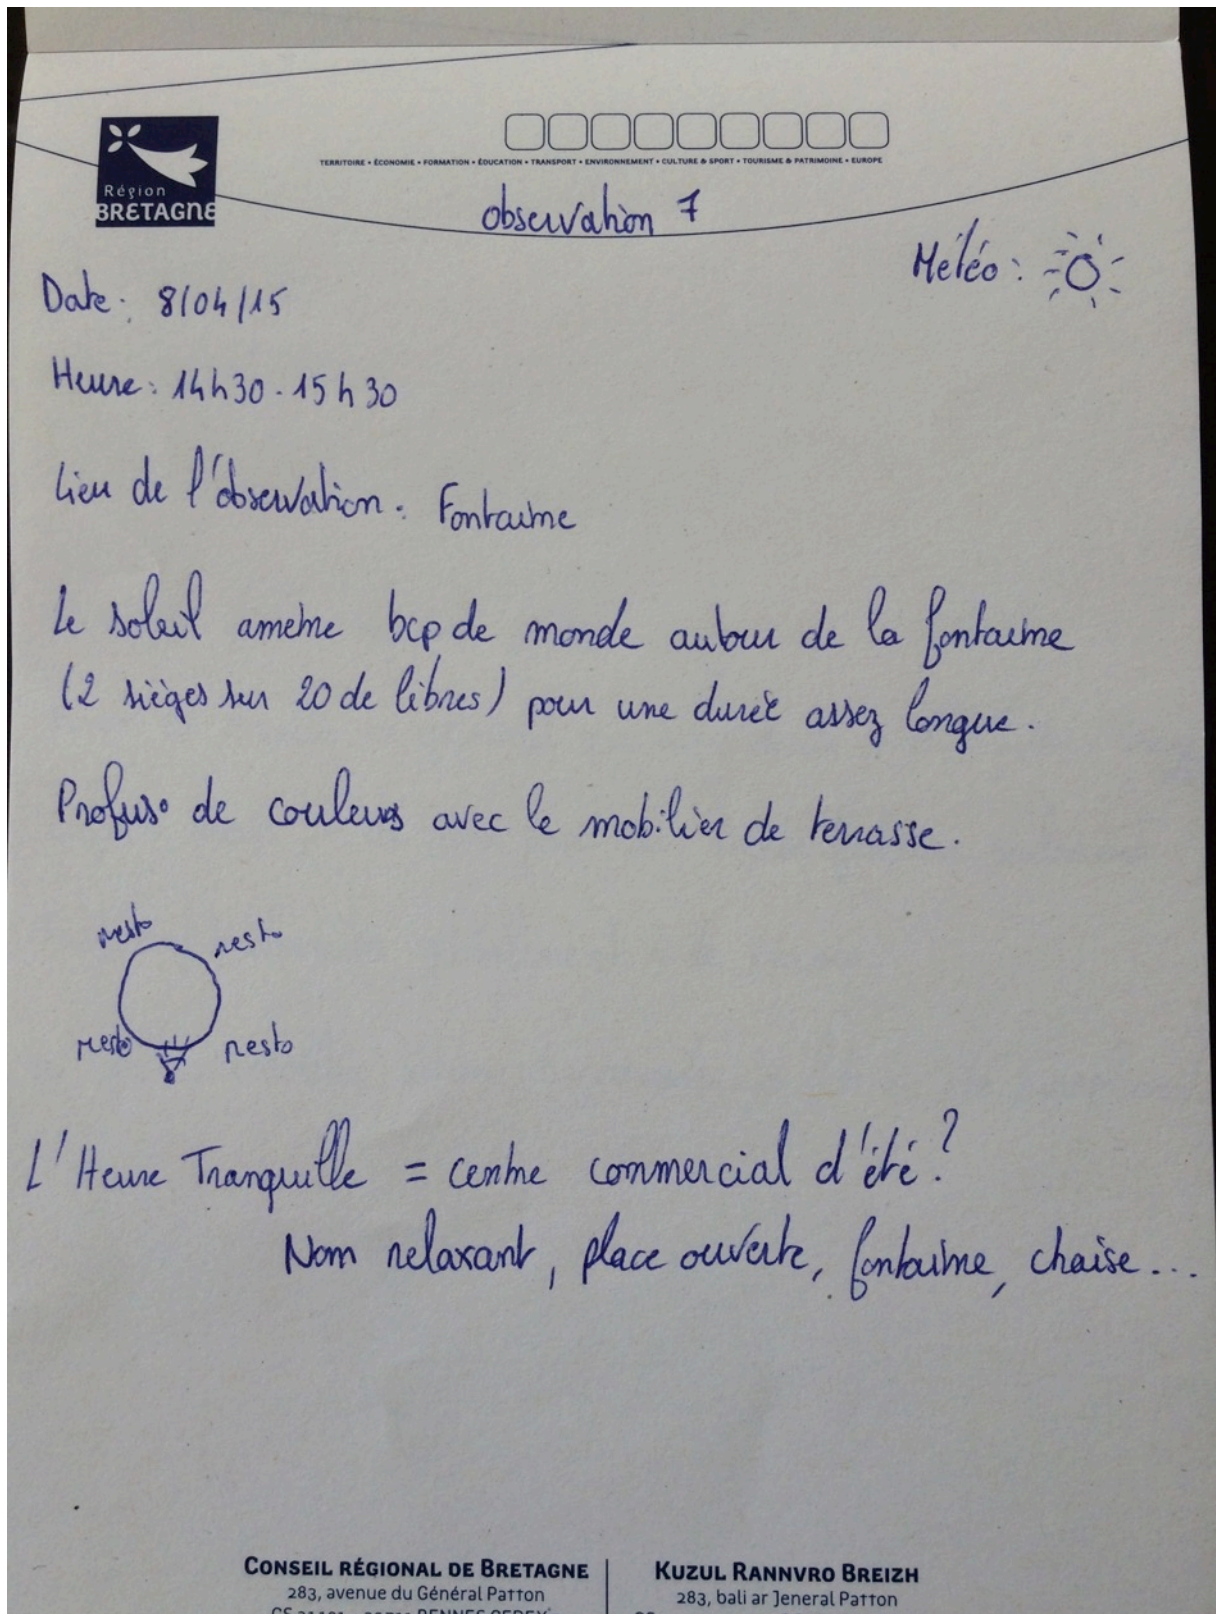 TERRITOIRE • ÉCONOMIE • FORMATION • ÉDUCATION • TRANSPORT • ENVIRONNEMENT • CULTURE & SPORT • TOURISME & PATRIMOINE • EUROPE
Région
BRETAGNE
observation 7
Météo :
Date : 8/04/15
Heure : 14h30 - 15h30
Lieu de l'observation : Fontaine
Le soleil amène bcp de monde autour de la fontaine
(2 sièges sur 20 de libres) pour une durée assez longue.
Profus° de couleurs avec le mobilier de terrasse.
resto resto
resto resto
L'Heure Tranquille = centre commercial d'été ?
Nom relaxant, place ouverte, fontaine, chaise...
CONSEIL RÉGIONAL DE BRETAGNE
283, avenue du Général Patton
KUZUL RANNVRO BREIZH
283, bali ar Jeneral Patton